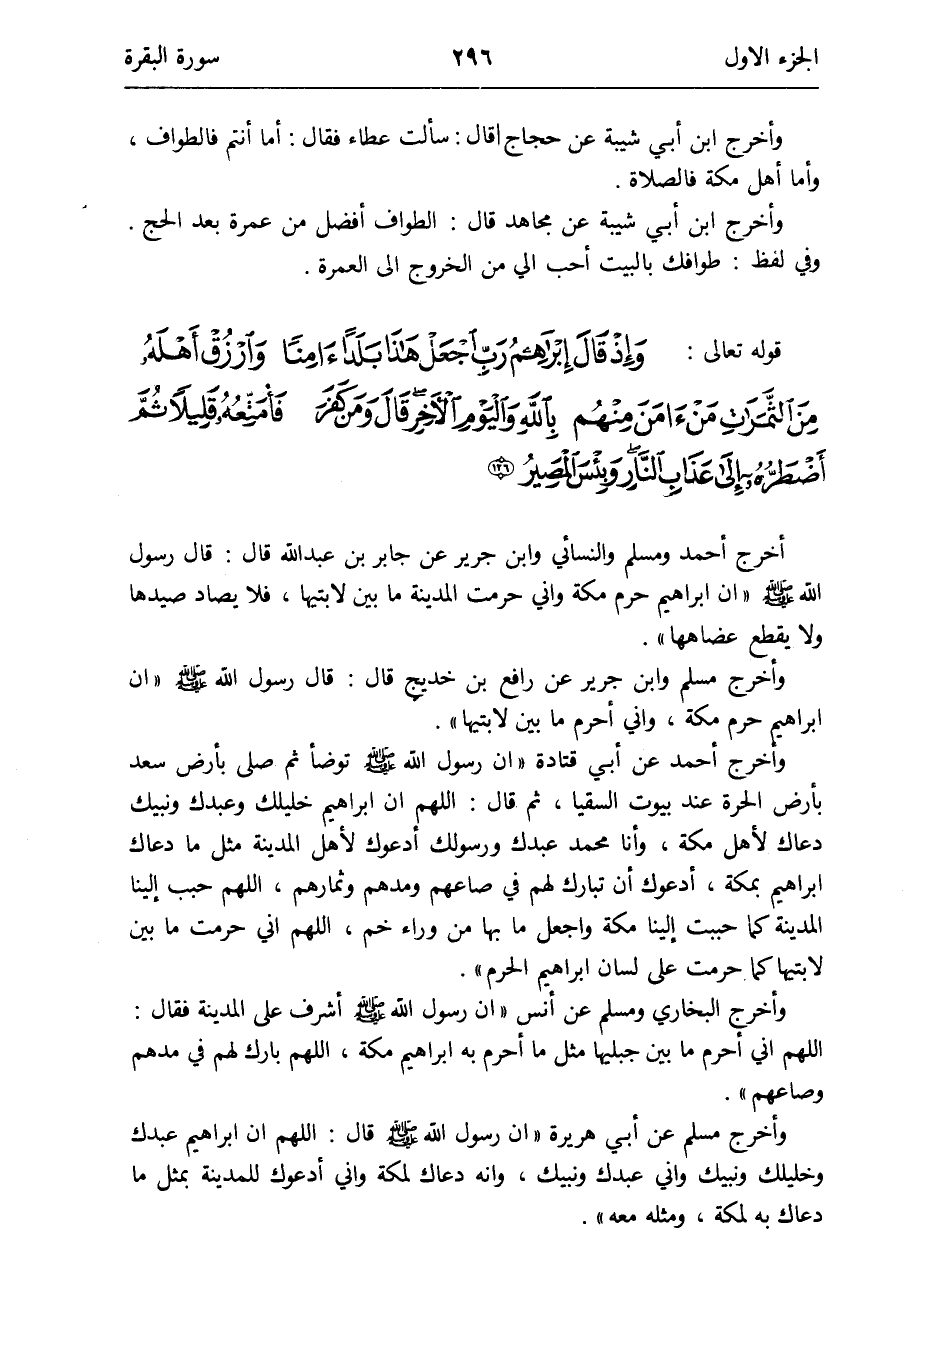 الجزء الاول ٢٩٦ سورة البقرة
وأخرج ابن أبي شيبة عن حجاج قال : سألت عطاء فقال : أما أنتم فالطواف ،
وأما أهل مكة فالصلاة .
وأخرج ابن أبي شيبة عن مجاهد قال : الطواف أفضل من عمرة بعد الحج .
وفي لفظ : طوافك بالبيت أحب الي من الخروج الى العمرة .
قوله تعالى : وَإِذْ قَالَ إِبْرَاهِـۧمُ رَبِّ ٱجْعَلْ هَٰذَا بَلَدًا ءَامِنًا وَٱرْزُقْ أَهْلَهُۥ
مِنَ ٱلثَّمَرَٰتِ مَنْ ءَامَنَ مِنْهُم بِٱللَّهِ وَٱلْيَوْمِ ٱلْأٓخِرِۖ قَالَ وَمَن كَفَرَ فَأُمَتِّعُهُۥ قَلِيلًا ثُمَّ
أَضْطَرُّهُۥٓ إِلَىٰ عَذَابِ ٱلنَّارِۖ وَبِئْسَ ٱلْمَصِيرُ ١٢٦
أخرج أحمد ومسلم والنسائي وابن جرير عن جابر بن عبدالله قال : قال رسول
الله ﷺ «ان ابراهيم حرم مكة واني حرمت المدينة ما بين لابتيها ، فلا يصاد صيدها
ولا يقطع عضاهها» .
وأخرج مسلم وابن جرير عن رافع بن خديج قال : قال رسول الله ﷺ «ان
ابراهيم حرم مكة ، واني أحرم ما بين لابتيها» .
وأخرج أحمد عن أبي قتادة «ان رسول الله ﷺ توضأ ثم صلى بأرض سعد
بأرض الحرة عند بيوت السقيا ، ثم قال : اللهم ان ابراهيم خليلك وعبدك ونبيك
دعاك لأهل مكة ، وأنا محمد عبدك ورسولك أدعوك لأهل المدينة مثل ما دعاك
ابراهيم بمكة ، أدعوك أن تبارك لهم في صاعهم ومدهم وثمارهم ، اللهم حبب إلينا
المدينة كما حببت إلينا مكة واجعل ما بها من وراء خم ، اللهم اني حرمت ما بين
لابتيها كما حرمت على لسان ابراهيم الحرم» .
وأخرج البخاري ومسلم عن أنس «ان رسول الله ﷺ أشرف على المدينة فقال :
اللهم اني أحرم ما بين جبليها مثل ما أحرم به ابراهيم مكة ، اللهم بارك لهم في مدهم
وصاعهم» .
وأخرج مسلم عن أبي هريرة «ان رسول الله ﷺ قال : اللهم ان ابراهيم عبدك
وخليلك ونبيك واني عبدك ونبيك ، وانه دعاك لمكة واني أدعوك للمدينة بمثل ما
دعاك به لمكة ، ومثله معه» .